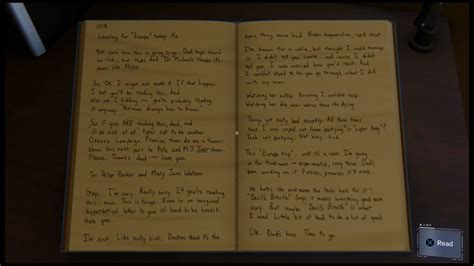 Leaving for "Europe" today. Ha.
Not sure how this is going to go. Dad says there's
no risk, but that's dad. Dr. Michaels thinks it's
more like 50/50.
So, OK. I might not make it. If that happens
I bet you'll be reading this, dad.
Who am I kidding — you're probably reading
it anyway. "Norman always has to know."
So if you ARE reading this, dad, and
if no risk at all turns out to be another
Osborn Campaign Promise then do me a favor:
Show this next part to Pete and MJ. JUST them.
Please. Thanks, dad — love you
To: Peter Parker and Mary Jane Watson
Guys... I'm sorry. Really sorry. If you're reading
this — man. This is tough. Even in an imagined
hypothetical letter to you it's hard to be honest.
Here goes.
I'm sick. Like really sick. Doctors think it's the
same thing mom had.
I've known for a while, but thought I could manage
it. I didn't tell you cause... well cause, I didn't
tell you. I was worried how you'd react. And
I couldn't stand to see you go through what I did
with my mom.
Watching her suffer. Knowing I couldn't help.
Watching her die was worse than the dying.
Things got really bad recently. All those times
that I was wiped out from partying
Yeah. Not partying. Not busy. Sick.
This "Europe trip"... well it's a cover. I'm going
in for treatment — experimental, long term. Dad's
been working on it forever, promises it'll work.
He hates the nickname the techs have for it.
"Devil's Breath." Says it makes something good seem
scary. But maybe "Devil's Breath" is what
I need. Little bit of bad to do a lot of good.
OK. Dad's here. Time to go.
Read